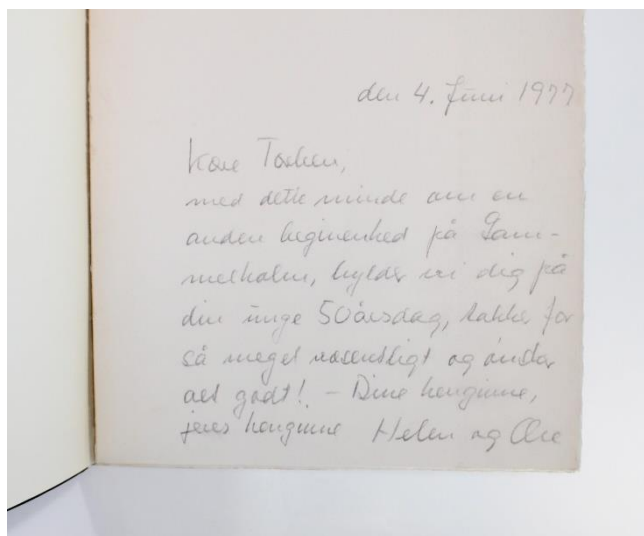 den 4. Juni 1977
Kære Torben,
med dette minde om en
anden begivenhed på Gam-
melholm, hylder vi dig på
din unge 50årsdag, takker for
så meget væsentligt og ønsker
alt godt! - Dine hengivne,
jeres hengivne Helen og Ole